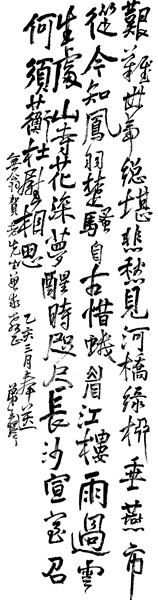 艱難世事總堪悲愁見河橋綠柳垂燕市
從今知鳳羽楚騷自古惜蛾眉江樓雨過雲
生處山寺花深夢醒時咫尺長沙宣室召
何須蘅杜慰相思
乙亥三月奉送